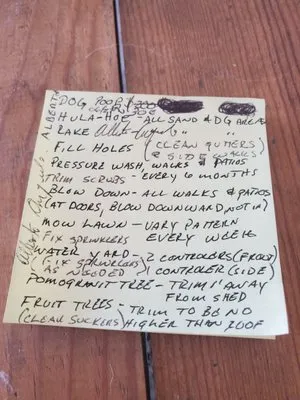 DOG POOP
HULA-HOE - ALL SAND & DG AREAS
RAKE " "
FILL HOLES (CLEAN GUTTERS
& SIDE WALKS)
PRESSURE WASH, WALKS & PATIOS
TRIM SCRUBS - EVERY 6 MONTHS
BLOW DOWN - ALL WALKS & PATIOS
(AT DOORS, BLOW DOWNWARD, NOT IN)
MOW LAWN - VARY PATTERN
FIX SPRINKLERS EVERY WEEK
WATER YARD - 2 CONTROLERS (FRONT)
(FIX SPRINKLERS AS NEEDED) 1 CONTROLER (SIDE)
POMOGRANIT TREE - TRIM 1' AWAY
FROM SHED
FRUIT TREES - TRIM TO BE NO
(CLEAN SUCKERS) HIGHER THAN ROOF
ALBERTO